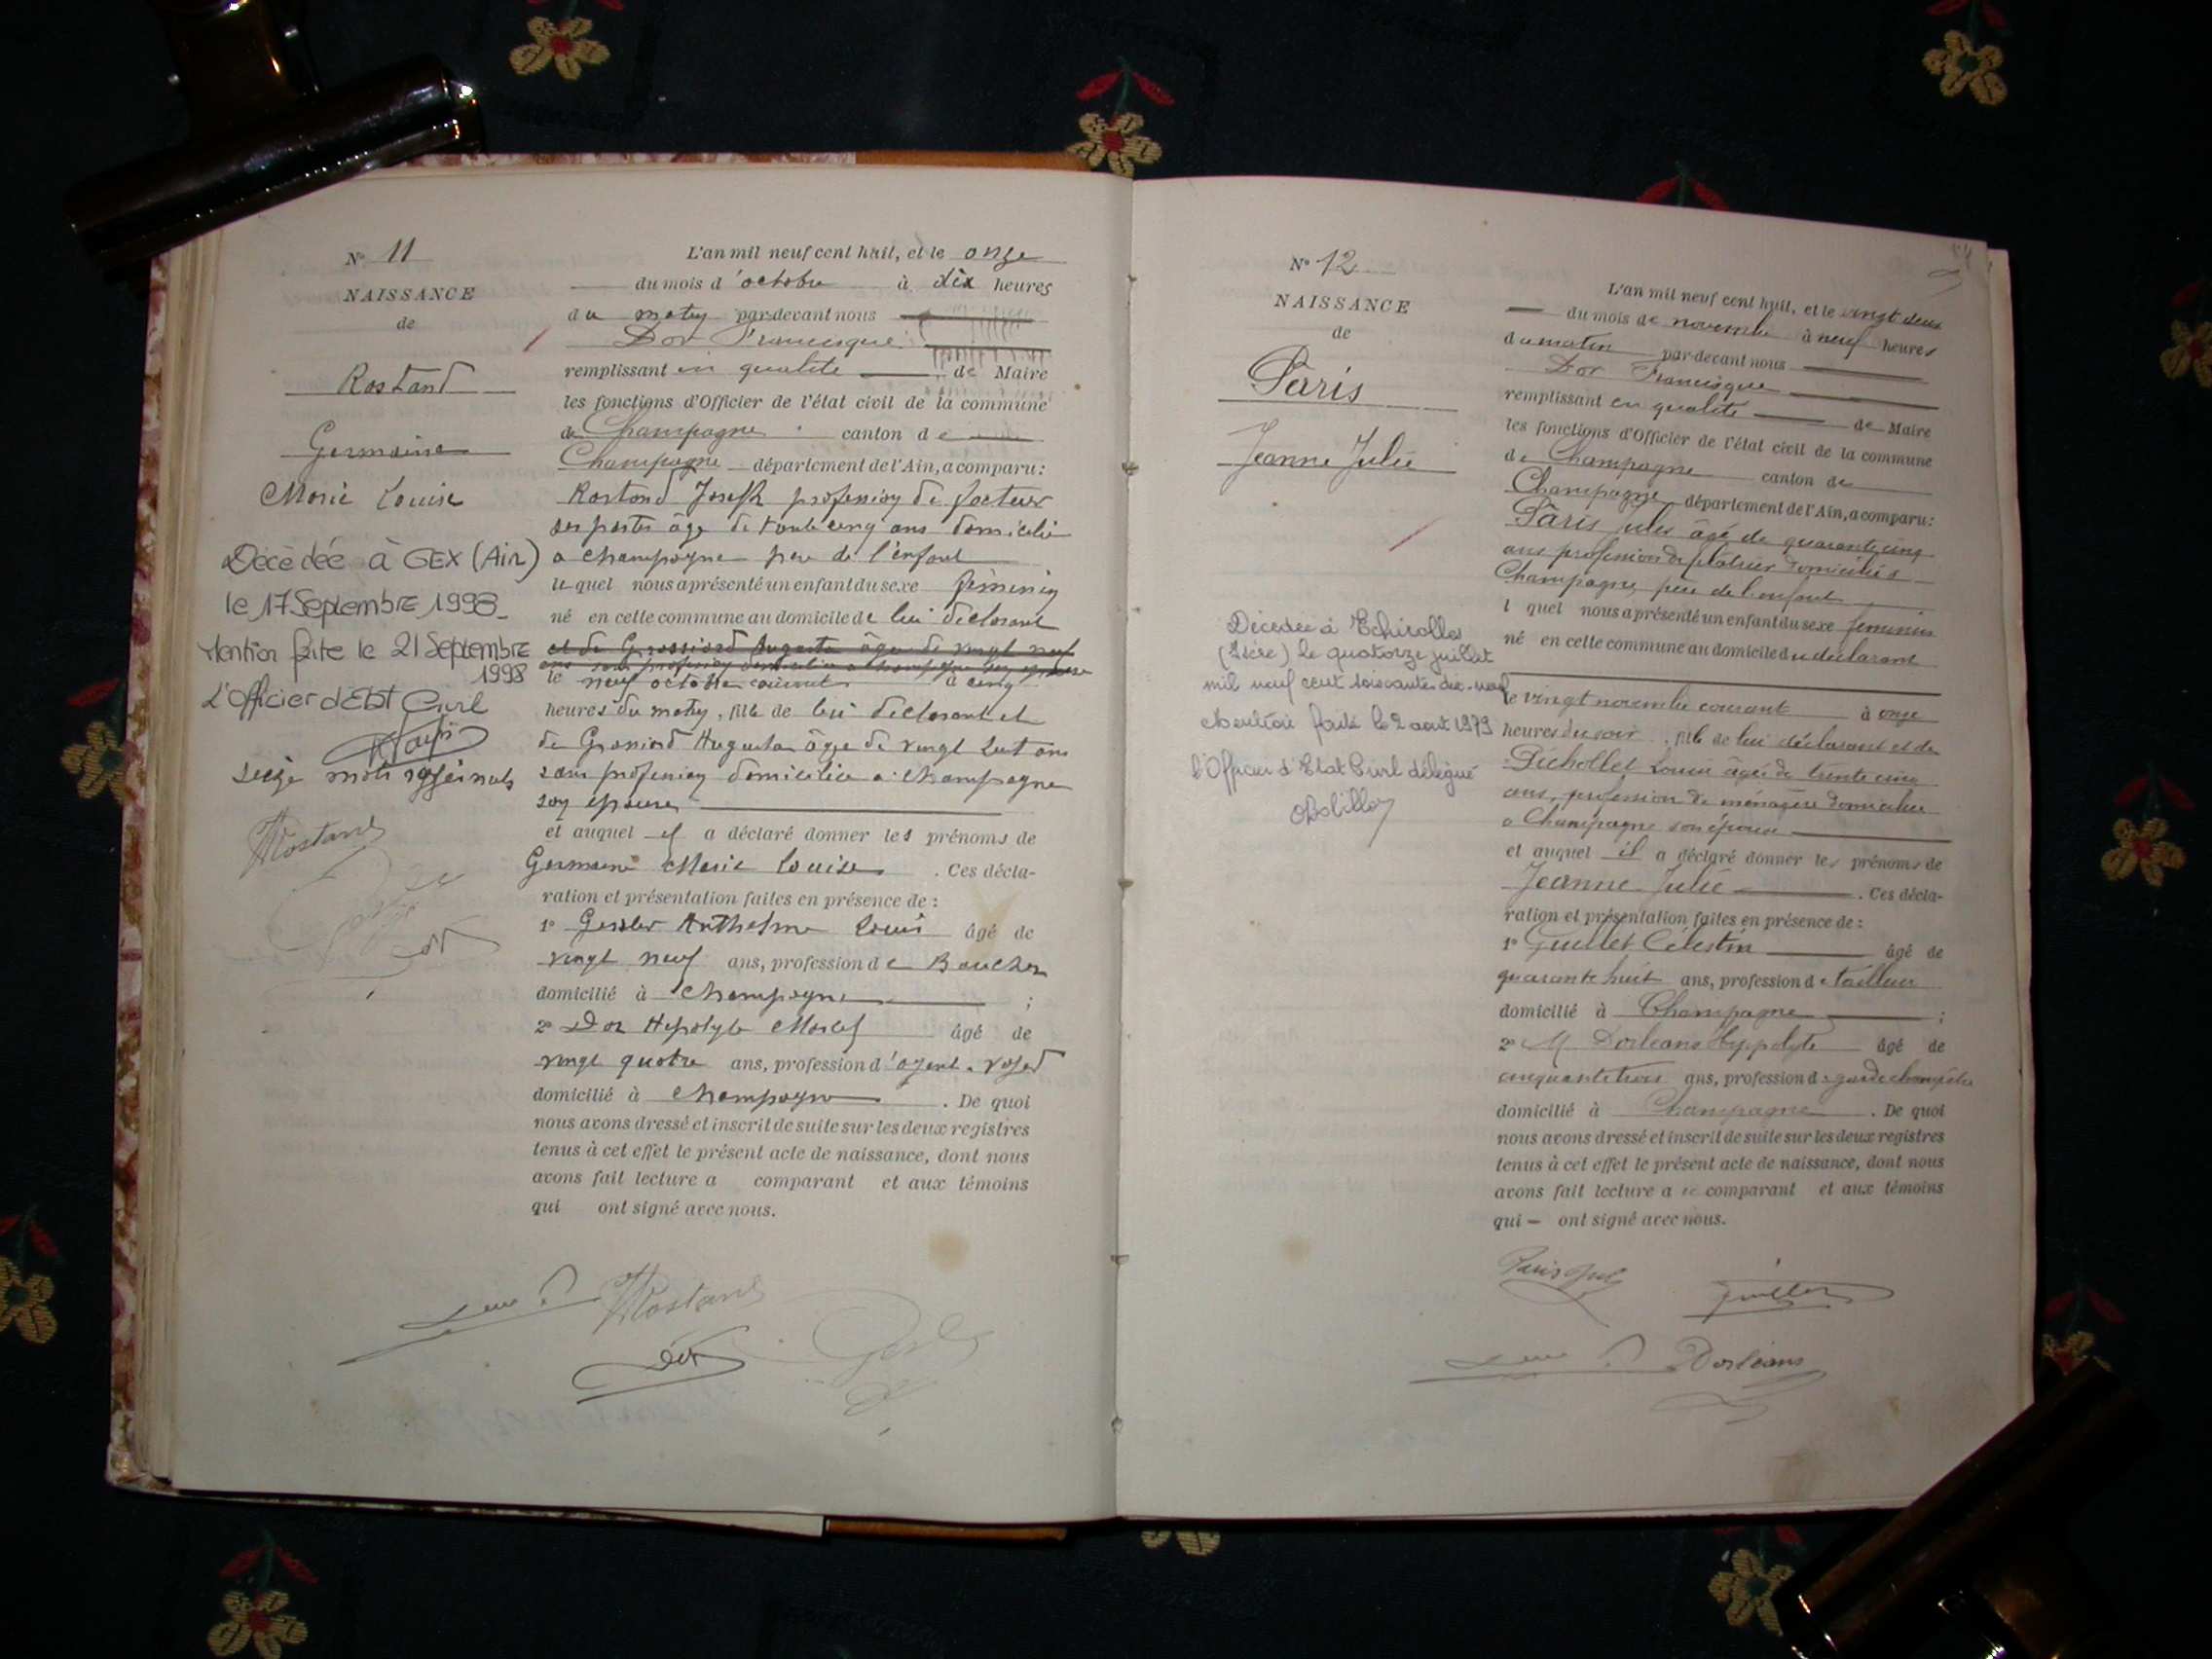 N° 11
NAISSANCE
de
Rostand
Germaine
Marie Louise
Décédée à GEX (Ain)
le 17 Septembre 1998
Mention faite le 21 Septembre
1998
L'Officier d'Etat Civil
seize mots rayés nuls
Rostand
Dor
L'an mil neuf cent huit, et le onze
du mois d'octobre à dix heures
du matin par-devant nous
Dor Francisque
remplissant en qualité de Maire
les fonctions d'Officier de l'état civil de la commune
de Champagne canton de
Champagne département de l'Ain, a comparu:
Rostand Joseph profession de facteur
des postes âgé de trente cinq ans domicilié
a Champagne père de l'enfant
lequel nous a présenté un enfant du sexe féminin
né en cette commune au domicile de lui déclarant
et de Grossiord Augusta âgée de vingt neuf
ans sans profession domiciliée a Champagne son épouse
le neuf octobre courant à cinq
heures du matin, fille de lui déclarant et
de Grossiord Augusta âgée de vingt huit ans
sans profession domiciliée a Champagne
son épouse
et auquel il a déclaré donner les prénoms de
Germaine Marie Louise . Ces décla-
ration et présentation faites en présence de :
1° Anthelme Louis âgé de
vingt neuf ans, profession de Boucher
domicilié à Champagne ;
2° Dor Hypolyte Marcel âgé de
vingt quatre ans, profession d'agent-voyer
domicilié à Champagne . De quoi
nous avons dressé et inscrit de suite sur les deux registres
tenus à cet effet le présent acte de naissance, dont nous
avons fait lecture a comparant et aux témoins
qui ont signé avec nous.
Rostand
Dor
N° 12
NAISSANCE
de
Paris
Jeanne Julie
Décédée à Echirolles
(Isère) le quatorze juillet
mil neuf cent soixante dix-neuf
Mention faite le 2 aout 1979
L'Officier d'Etat Civil délégué
L'an mil neuf cent huit, et le vingt deux
du mois de novembre à neuf heures
du matin par-devant nous
Dor Francisque
remplissant en qualité de Maire
les fonctions d'Officier de l'état civil de la commune
de Champagne canton de
Champagne département de l'Ain, a comparu:
Paris Jules âgé de quarante cinq
ans profession de plâtrier domicilié à
Champagne, père de l'enfant
l quel nous a présenté un enfant du sexe féminin
né en cette commune au domicile du déclarant
le vingt novembre courant à onze
heures du soir, fille de lui déclarant et de
Pichollet Louise âgée de trente cinq
ans, profession de ménagère domiciliée
a Champagne son épouse
et auquel il a déclaré donner les prénoms de
Jeanne Julie . Ces décla-
ration et présentation faites en présence de :
1° Guillet Célestin âgé de
quarante huit ans, profession de tailleur
domicilié à Champagne ;
2° M Dorléans Hyppolyte âgé de
cinquante trois ans, profession de garde champêtre
domicilié à Champagne . De quoi
nous avons dressé et inscrit de suite sur les deux registres
tenus à cet effet le présent acte de naissance, dont nous
avons fait lecture a u comparant et aux témoins
qui - ont signé avec nous.
Paris Jules
Guillet
Dorléans